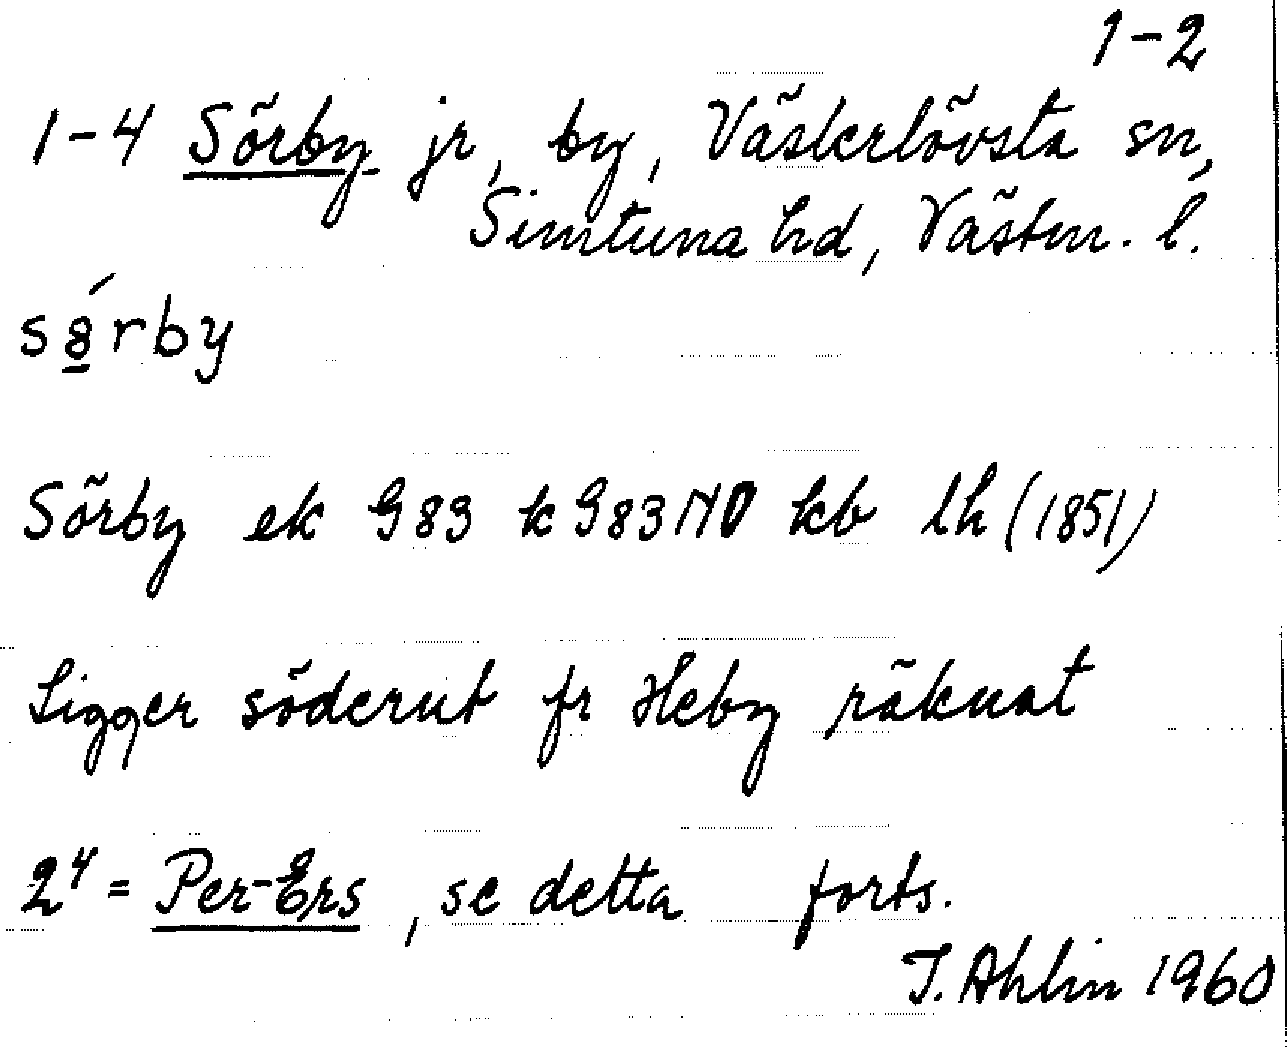 1-2
1-4 Sörby jr, by, Västerlövsta sn,
Simtuna hd, Västm. l.
sȣ́rby
Sörby ek G83 k G83NO kb lh (1851)
Ligger söderut fr Heby räknat
2⁴ = Per-Ers, se detta forts.
T. Ahlin 1960